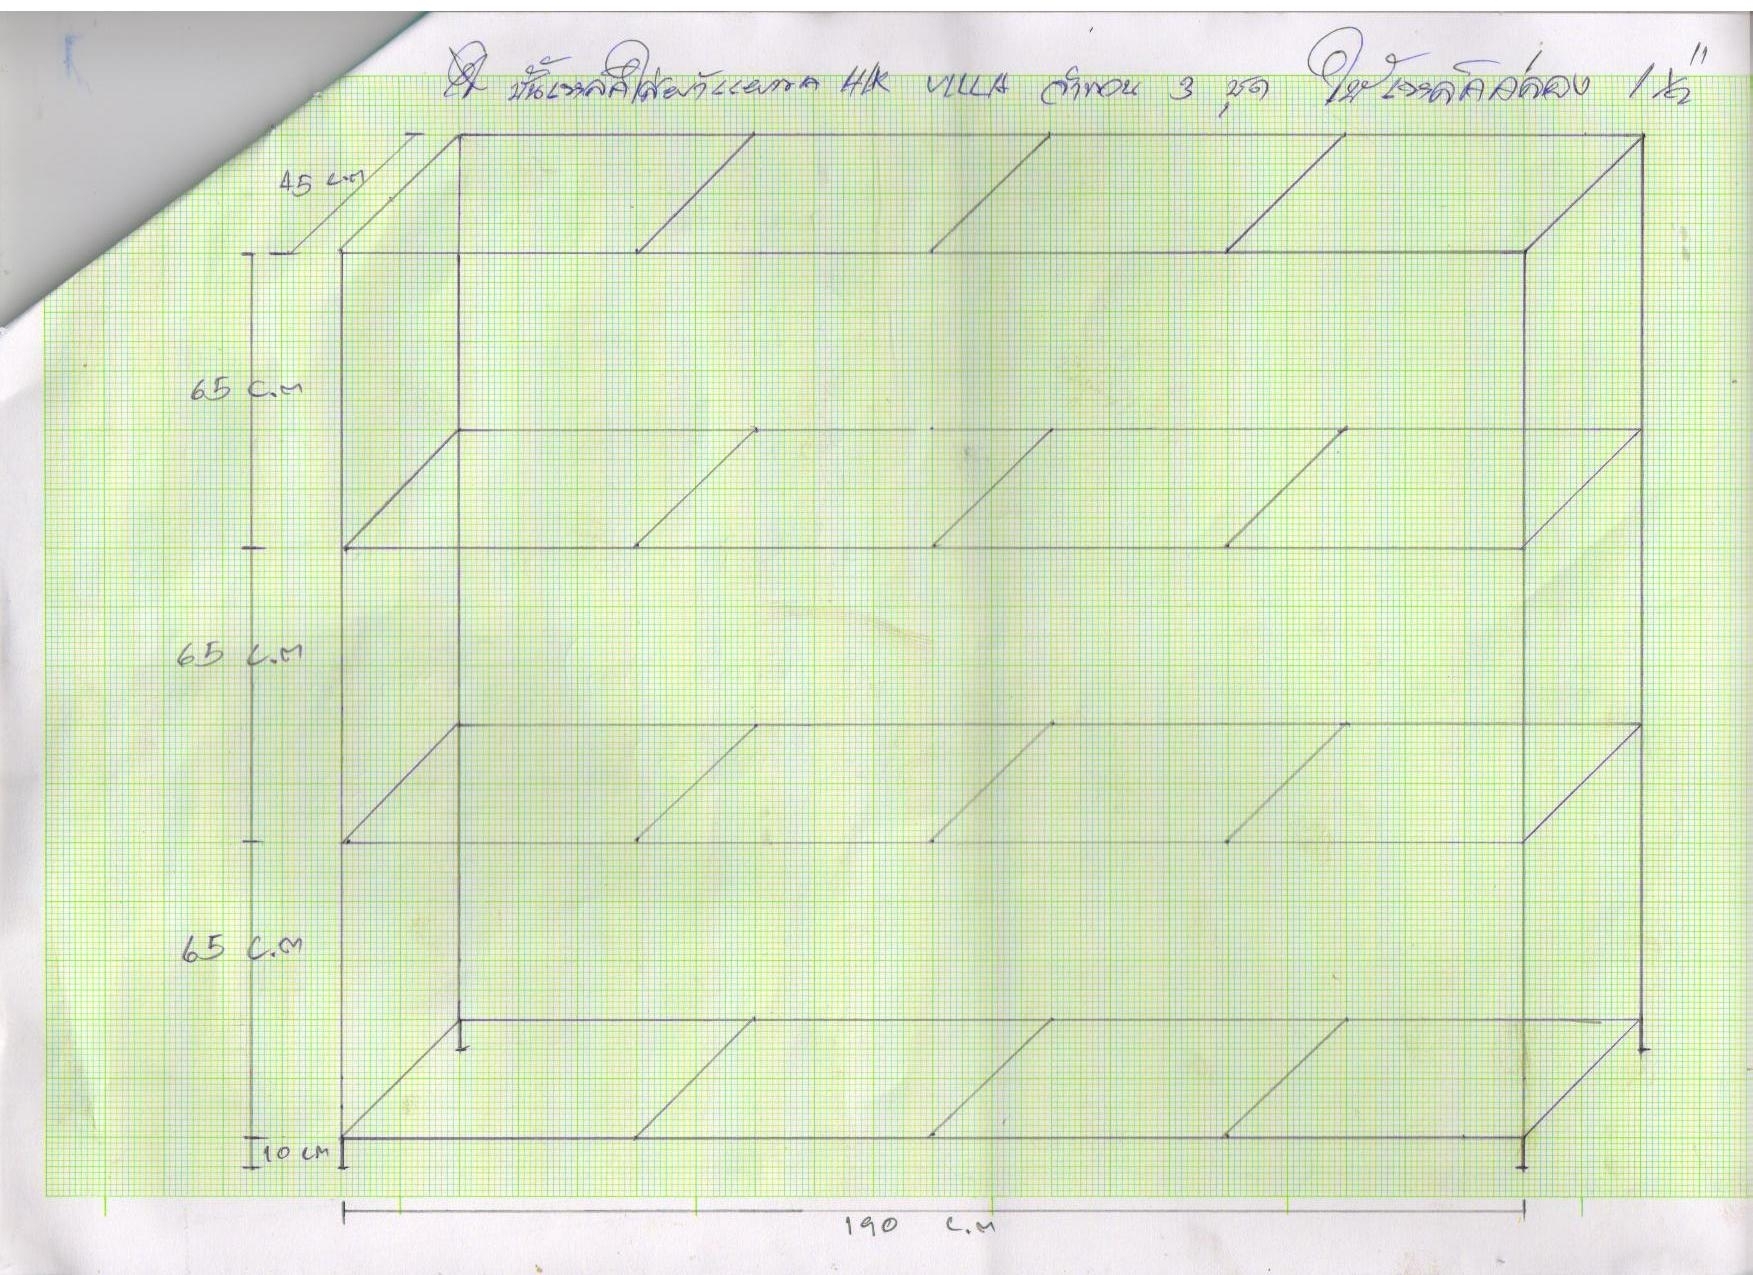 ชั้นเหล็กใส่ผ้า H/K VILLA จำนวน 3 ชุด ใช้เหล็กกล่อง 1 ½"
45 c.m
65 c.m
65 c.m
65 c.m
10 cm
190 c.m